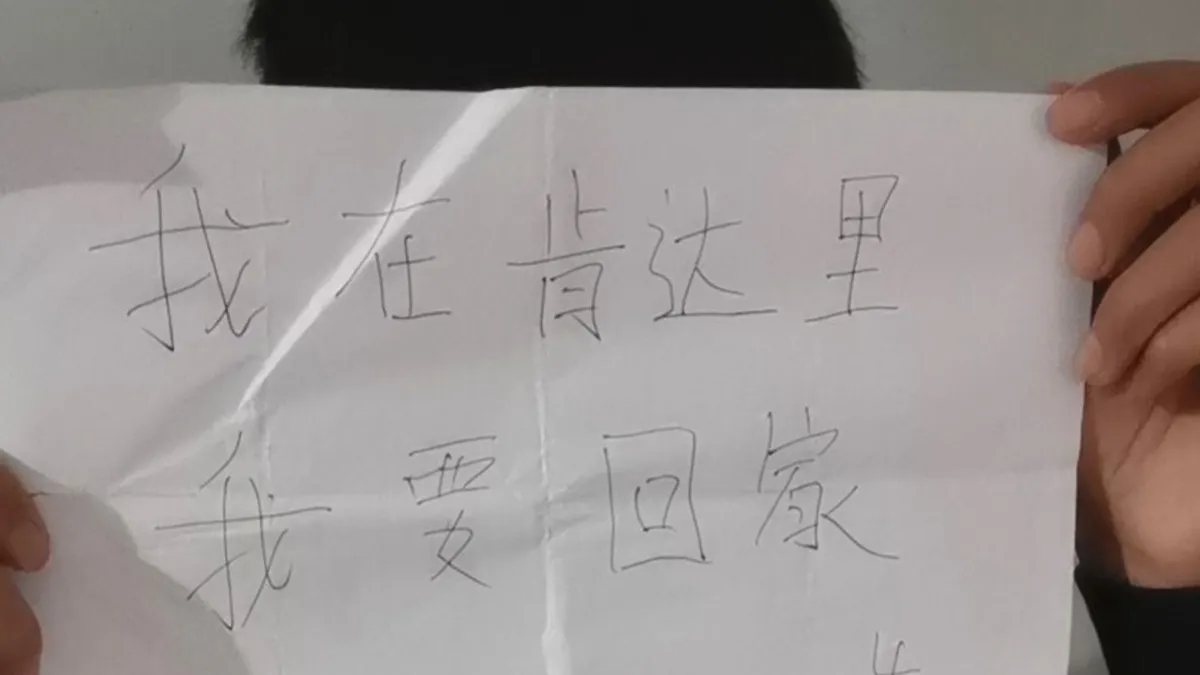 我在肯达里
我要回家